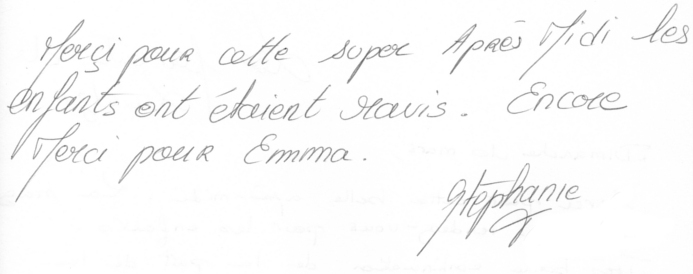 Merçi pour cette super Après Midi les
enfants ont étaient ravis. Encore
Merci pour Emma.
Stéphanie